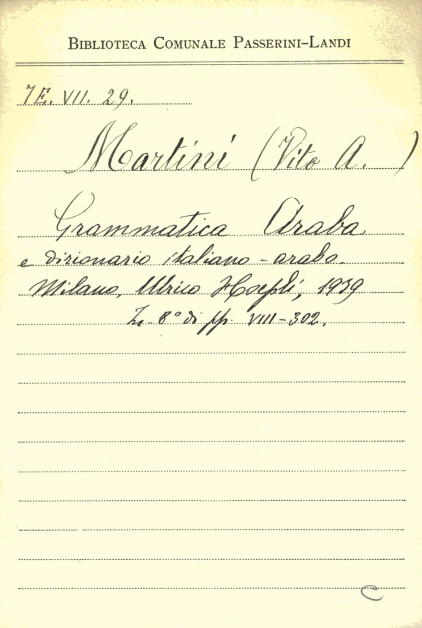 BIBLIOTECA COMUNALE PASSERINI-LANDI
7E. VII. 29.
Martini (Vito A. )
Grammatica Araba
e dizionario italiano - arabo.
Milano, Ulrico Hoepli, 1939
In 8° di pp. VIII-302.
C